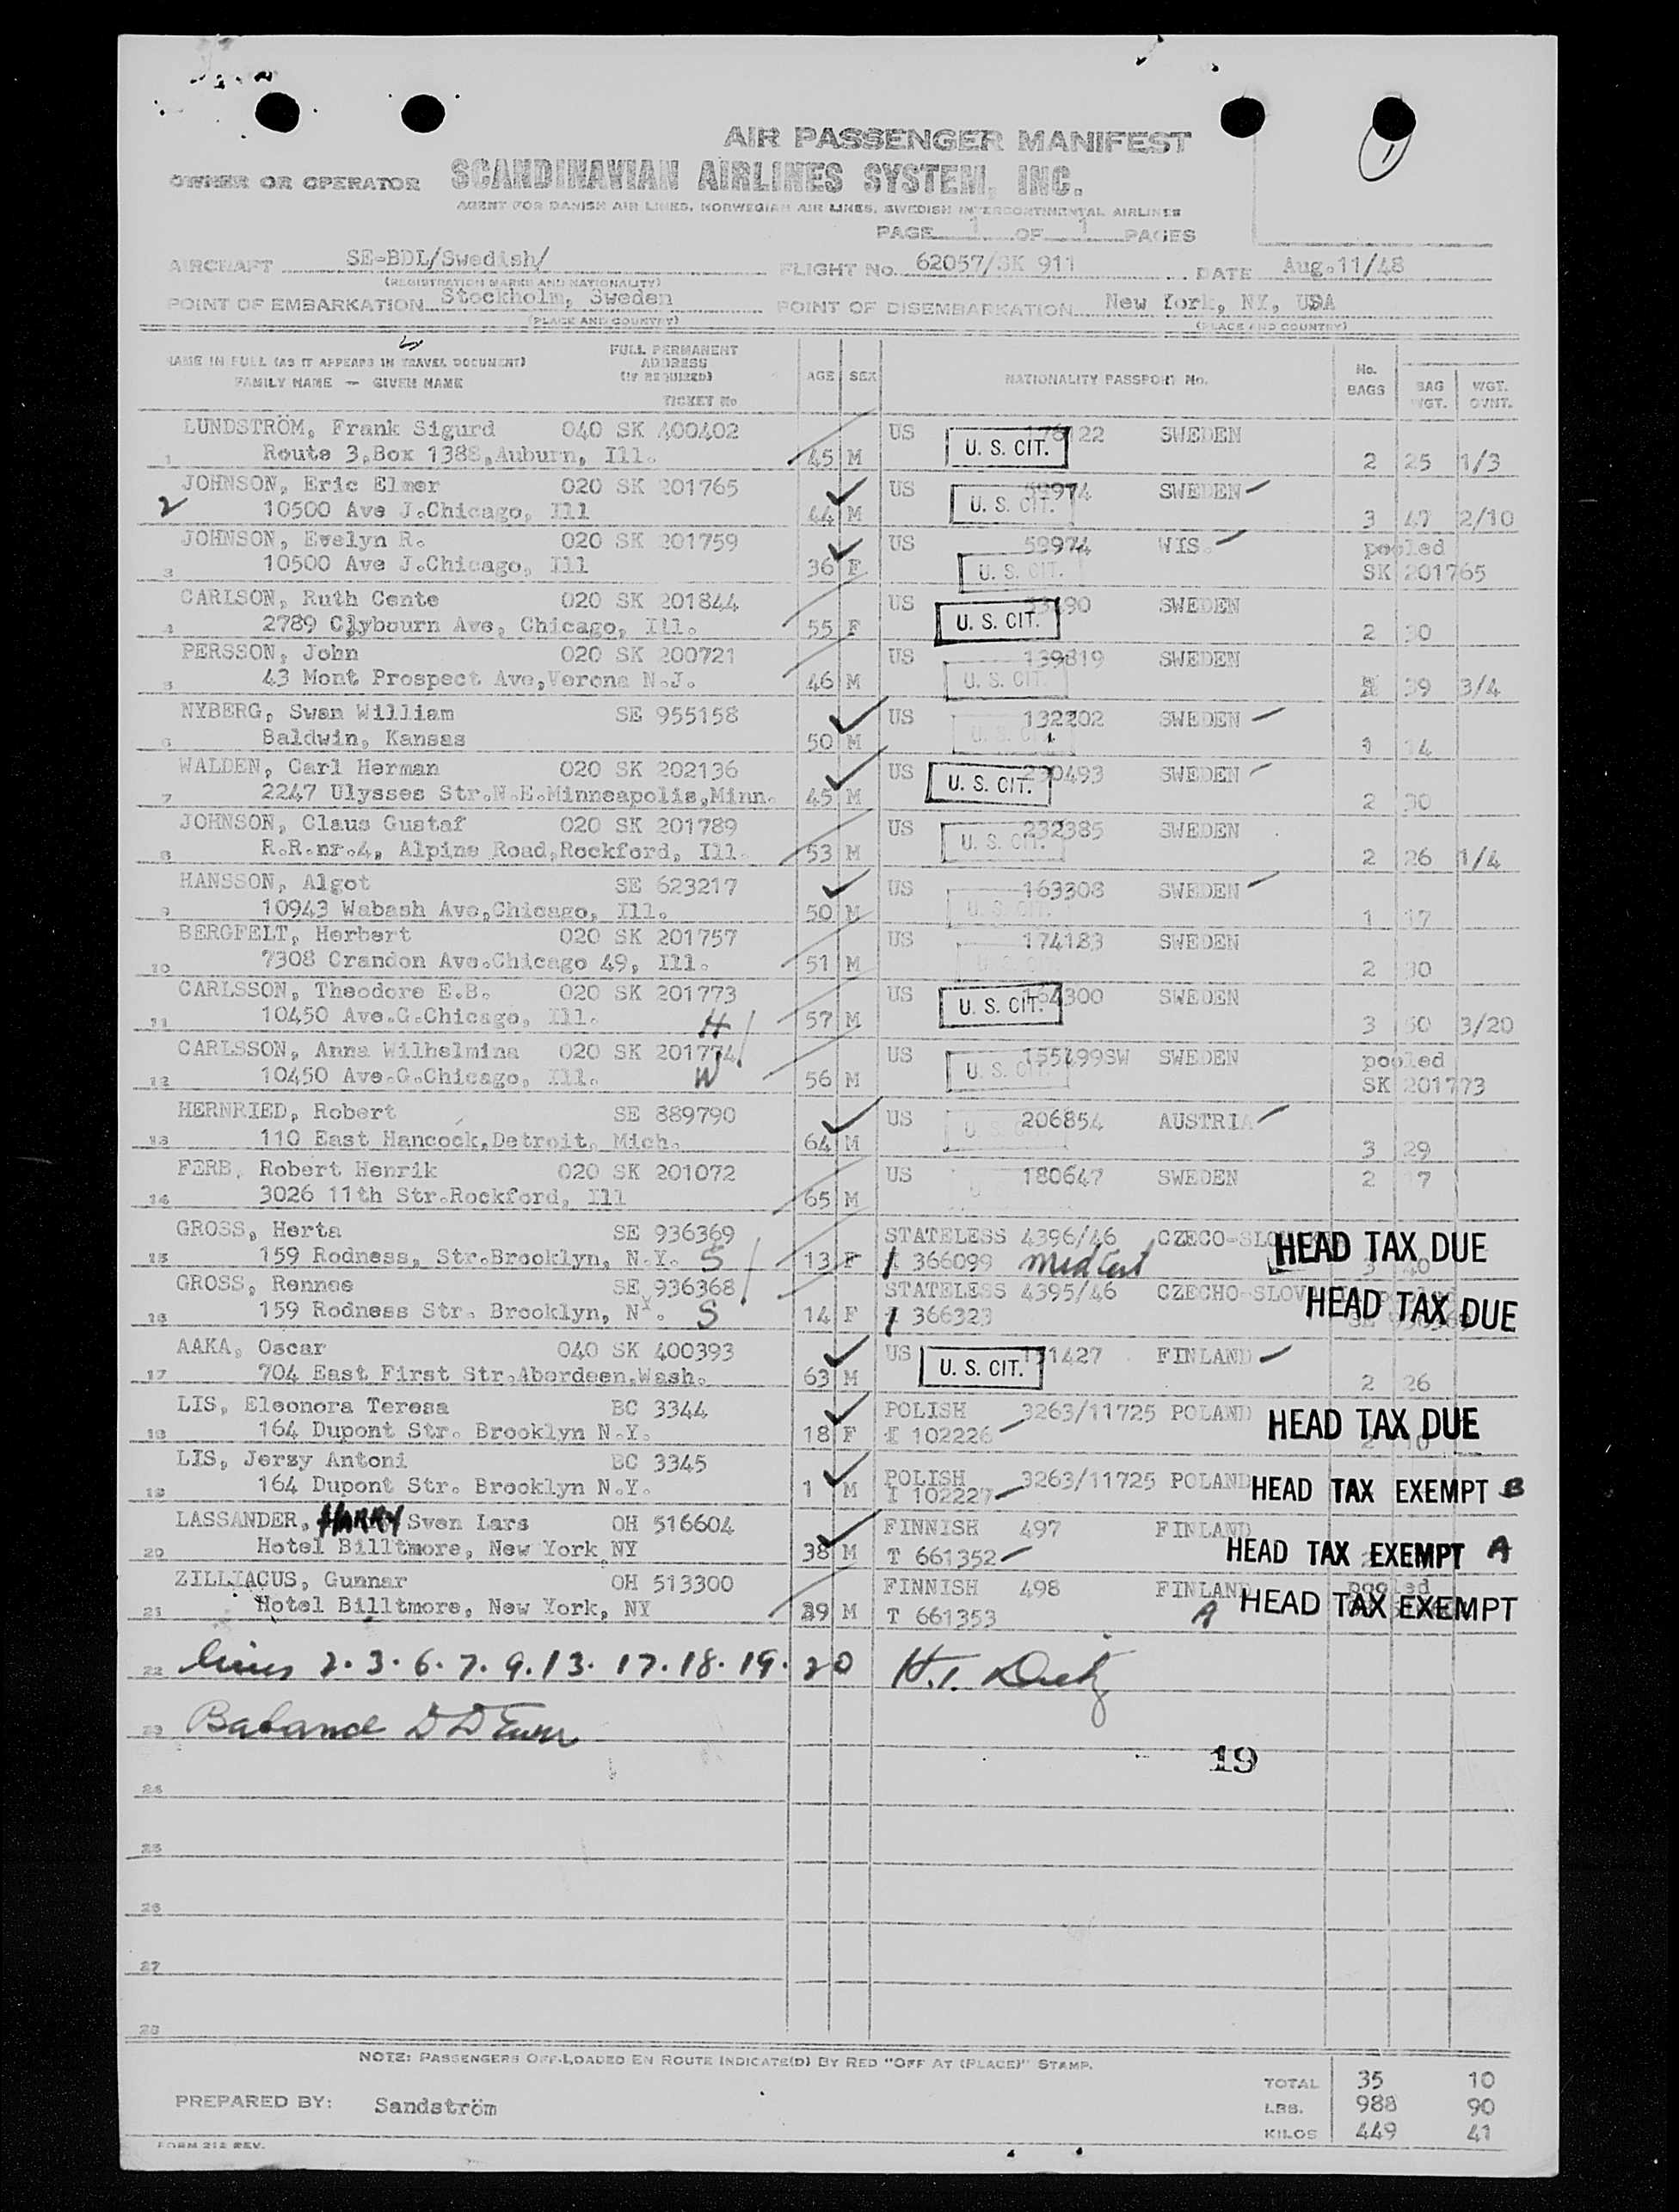 AIR PASSENGER MANIFEST
OWNER OR OPERATOR SCANDINAVIAN AIRLINES SYSTEM, INC.
AGENT FOR DANISH AIR LINES, NORWEGIAN AIR LINES, SWEDISH INTERCONTINENTAL AIRLINES
PAGE 1 OF 1 PAGES
AIRCRAFT SE-BDL/Swedish/ FLIGHT No. 62057/SK 911 DATE Aug.11/48
(REGISTRATION MARKS AND NATIONALITY)
POINT OF EMBARKATION Stockholm, Sweden POINT OF DISEMBARKATION New York, NY, USA
(PLACE AND COUNTRY) (PLACE AND COUNTRY)
NAME IN FULL (AS IT APPEARS IN TRAVEL DOCUMENT) FULL PERMANENT ADDRESS (IF REQUIRED) AGE SEX NATIONALITY PASSPORT No. No. BAGS BAG WGT. WGT. OVNT.
FAMILY NAME — GIVEN NAME TICKET No
LUNDSTRÖM, Frank Sigurd 040 SK 400402 US SWEDEN
1 Route 3,Box 1388,Auburn, Ill. 45 M U. S. CIT. 2 25 1/3
JOHNSON, Eric Elmer 020 SK 201765 US 59974 SWEDEN
2 10500 Ave J.Chicago, Ill 44 M U. S. CIT. 3 47 2/10
JOHNSON, Evelyn R. 020 SK 201759 US 59974 WIS. pooled
3 10500 Ave J.Chicago, Ill 36 F U. S. CIT. SK 201765
CARLSON, Ruth Cente 020 SK 201844 US SWEDEN
4 2789 Clybourn Ave, Chicago, Ill. 55 F U. S. CIT. 2 30
PERSSON, John 020 SK 200721 US 139819 SWEDEN
5 43 Mont Prospect Ave,Verona N.J. 46 M U. S. CIT. 39 3/4
NYBERG, Swan William SE 955158 US 132202 SWEDEN
6 Baldwin, Kansas 50 M U. S. CIT. 1 14
WALDEN, Carl Herman 020 SK 202136 US 230493 SWEDEN
7 2247 Ulysses Str.N.E.Minneapolis,Minn. 45 M U. S. CIT. 2 30
JOHNSON, Claus Gustaf 020 SK 201789 US 232385 SWEDEN
8 R.R.nr.4, Alpine Road,Rockford, Ill. 53 M U. S. CIT. 2 26 1/4
HANSSON, Algot SE 623217 US 163308 SWEDEN
9 10943 Wabash Ave,Chicago, Ill. 50 M U. S. CIT. 1 17
BERGFELT, Herbert 020 SK 201757 US 174183 SWEDEN
10 7308 Crandon Ave.Chicago 49, Ill. 51 M U. S. CIT. 2 30
CARLSSON, Theodore E.B. 020 SK 201773 US 164300 SWEDEN
11 10450 Ave.G.Chicago, Ill. H 57 M U. S. CIT. 3 60 3/20
CARLSSON, Anna Wilhelmina 020 SK 201774 US 155499SW SWEDEN pooled
12 10450 Ave.G.Chicago, Ill. W 56 M U. S. CIT. SK 201773
HERNRIED, Robert SE 889790 US 206854 AUSTRIA
13 110 East Hancock,Detroit, Mich. 64 M U. S. 3 29
FERB, Robert Henrik 020 SK 201072 US 180647 SWEDEN 2 7
14 3026 11th Str.Rockford, Ill 65 M
GROSS, Herta SE 936369 STATELESS 4396/46 CZECO-SLO HEAD TAX DUE
15 159 Rodness, Str.Brooklyn, N.Y. S 13 F I 366099 Med Cert
GROSS, Rennee SE 936368 STATELESS 4395/46 CZECHO-SLOV HEAD TAX DUE
16 159 Rodness Str. Brooklyn, NY. S 14 F I 366323
AAKA, Oscar 040 SK 400393 US FINLAND
17 704 East First Str.Aberdeen.Wash. 63 M U. S. CIT. 2 26
LIS, Eleonora Teresa BC 3344 POLISH 3263/11725 POLAND HEAD TAX DUE
18 164 Dupont Str. Brooklyn N.Y. 18 F I 102226
LIS, Jerzy Antoni BC 3345 POLISH 3263/11725 POLAND HEAD TAX EXEMPT B
19 164 Dupont Str. Brooklyn N.Y. 1 M I 102227
LASSANDER, HARRY Sven Lars OH 516604 FINNISH 497 FINLAND
20 Hotel Billtmore, New York NY 38 M T 661352 HEAD TAX EXEMPT A
ZILLIACUS, Gunnar OH 513300 FINNISH 498 FINLAND pooled
21 Hotel Billtmore, New York, NY 39 M T 661353 A HEAD TAX EXEMPT
22 lines 2.3.6.7.9.13.17.18.19.20 H.T.
23 Balance D D
19
24
25
26
27
28
NOTE: PASSENGERS OFF-LOADED EN ROUTE INDICATE(D) BY RED "OFF AT (PLACE)" STAMP.
TOTAL 35 10
PREPARED BY: Sandström LBS. 988 90
KILOS 449 41
FORM 212 REV.